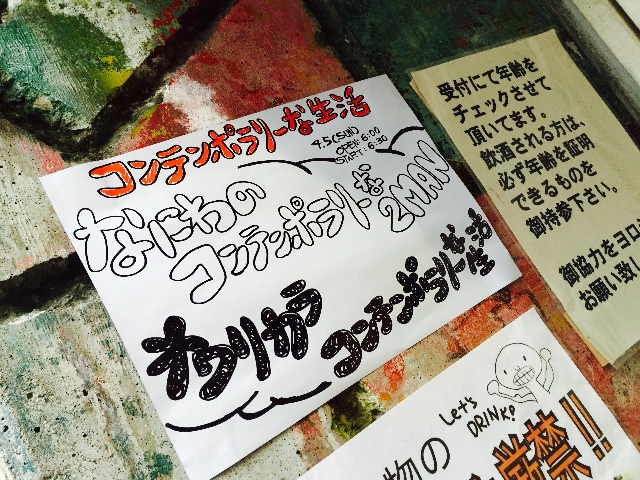 コンテンポラリーな生活
4.5(SUN)
OPEN: 6:00
START: 6:30
なにわの
コンテンポラリーな
2MAN
オワリカラ
コンテンポラリーな生活
受付にて年齢を
チェックさせて
頂いてます。
飲酒される方は、
必ず年齢を証明
できるものを
御持参下さい。
御協力をヨロ
お願い致し
Let's
DRINK!
物の
厳禁!!